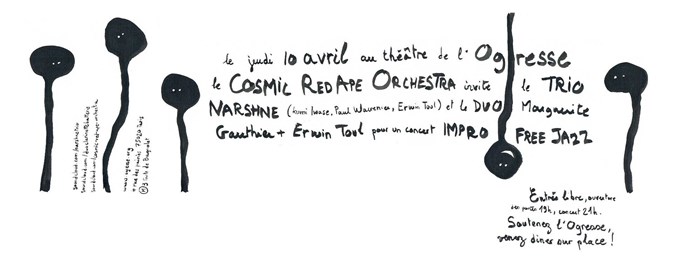 le jeudi 10 avril au théâtre de l'Ogresse
le COSMIC RED APE ORCHESTRA invite le TRIO
NARSHNE (Kumi Iwase, Paul Wacrenier, Erwin Toul) et le DUO Marguerite
Gauthier + Erwin Toul pour un concert IMPRO FREE JAZZ
Entrée libre, ouverture
des portes 19h, concert 21h.
Soutenez l'Ogresse,
venez diner sur place !